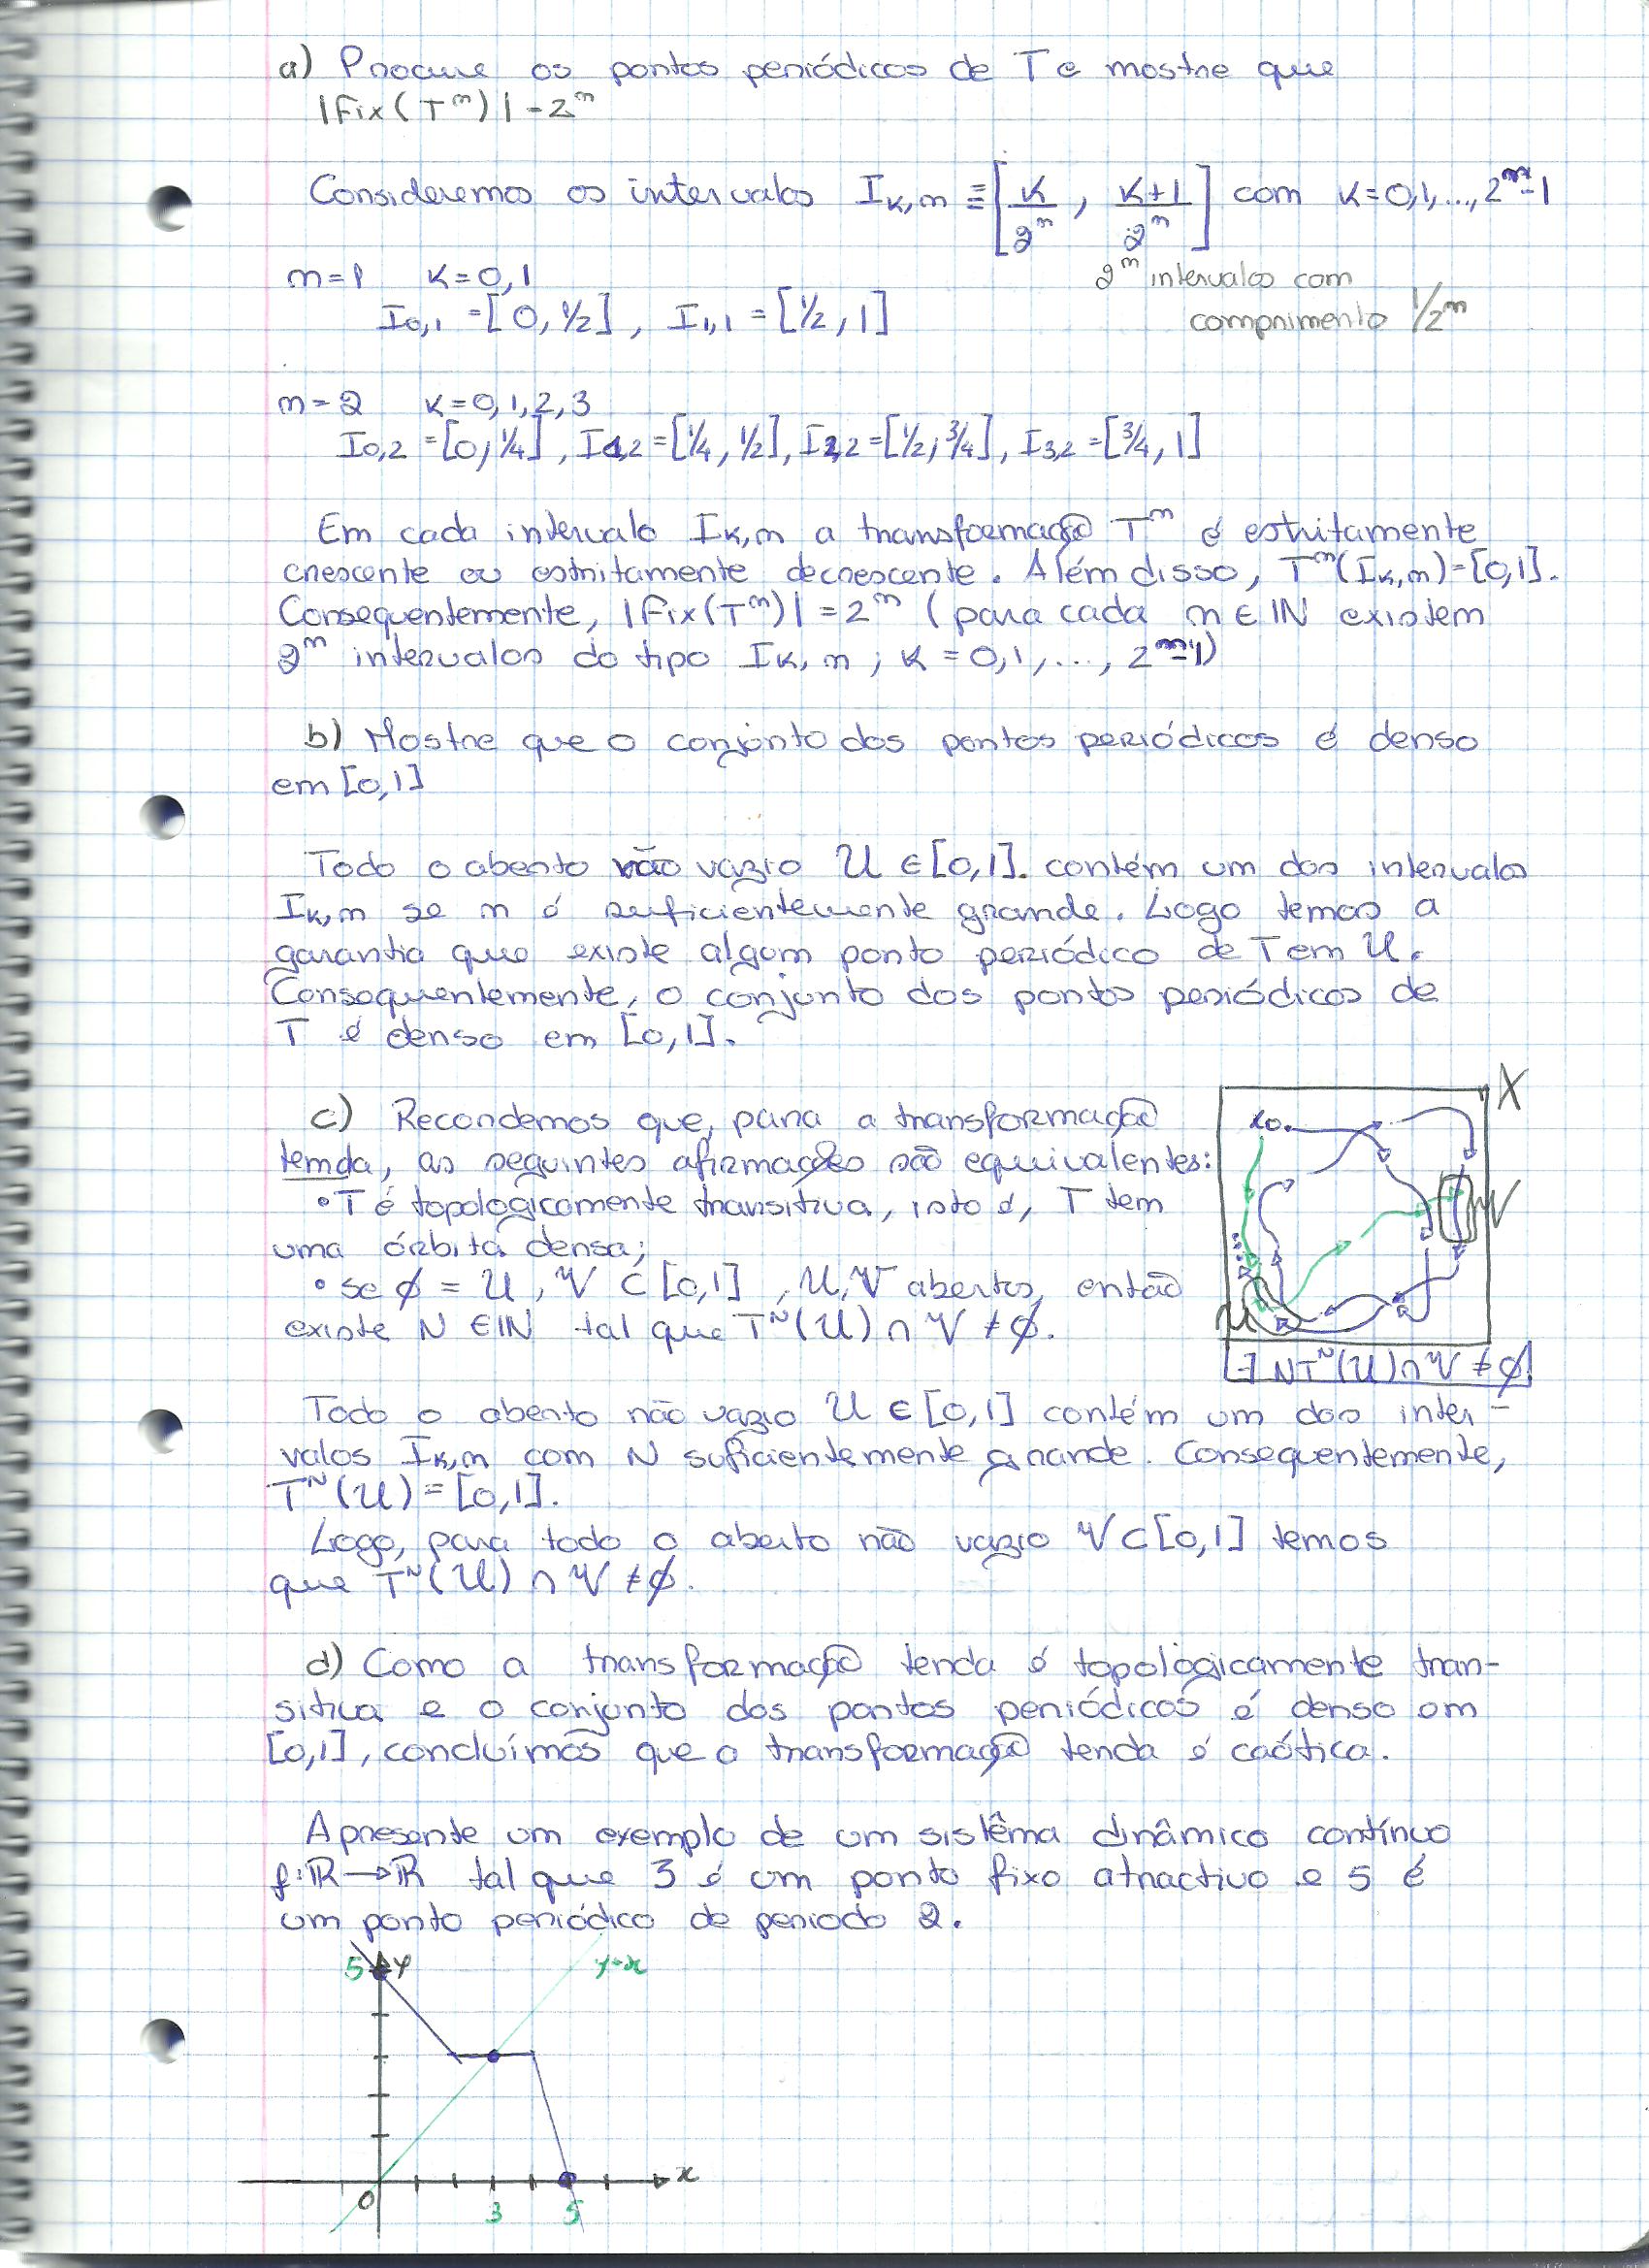 a) Procure os pontos periódicos de T e mostre que
|Fix(T^n)| = 2^n
Consideremos os intervalos I_{k,n} ≡ [k/2^n, k+1/2^n] com k=0,1,...,2^n-1
2^n intervalos com
comprimento 1/2^n
n=1 k=0,1
I_{0,1} = [0,1/2], I_{1,1} = [1/2,1]
n=2 k=0,1,2,3
I_{0,2} = [0,1/4], I_{1,2} = [1/4,1/2], I_{2,2} = [1/2,3/4], I_{3,2} = [3/4,1]
Em cada intervalo I_{k,n} a transformação T^n é estritamente
crescente ou estritamente decrescente. Além disso, T^n(I_{k,n})=[0,1].
Consequentemente, |Fix(T^n)| = 2^n (para cada n ∈ IN existem
2^n intervalos do tipo I_{k,n}; k = 0,1,...,2^n-1)
b) Mostre que o conjunto dos pontos periódicos é denso
em [0,1]
Todo o aberto não vazio U ∈ [0,1]. contém um dos intervalos
I_{k,n} se n é suficientemente grande. Logo temos a
garantia que existe algum ponto periódico de T em U.
Consequentemente, o conjunto dos pontos periódicos de
T é denso em [0,1].
c) Recordemos que, para a transformação
tenda, as seguintes afirmações são equivalentes:
• T é topologicamente transitiva, isto é, T tem
uma órbita densa;
• se ∅ = U, V ⊂ [0,1], U, V abertos, então
existe N ∈ IN tal que T^N(U) ∩ V ≠ ∅.
X
x0.
V
U
∃ N T^N(U) ∩ V ≠ ∅
Todo o aberto não vazio U ∈ [0,1] contém um dos inter-
valos I_{k,n} com N suficientemente grande. Consequentemente,
T^N(U) = [0,1].
Logo, para todo o aberto não vazio V ⊂ [0,1] temos
que T^N(U) ∩ V ≠ ∅.
d) Como a transformação tenda é topologicamente tran-
sitiva e o conjunto dos pontos periódicos é denso em
[0,1], concluímos que a transformação tenda é caótica.
Apresente um exemplo de um sistêma dinâmico contínuo
f: IR → IR tal que 3 é um ponto fixo atractivo e 5 é
um ponto periódico de periodo 2.
5 y y=x
x
0 3 5